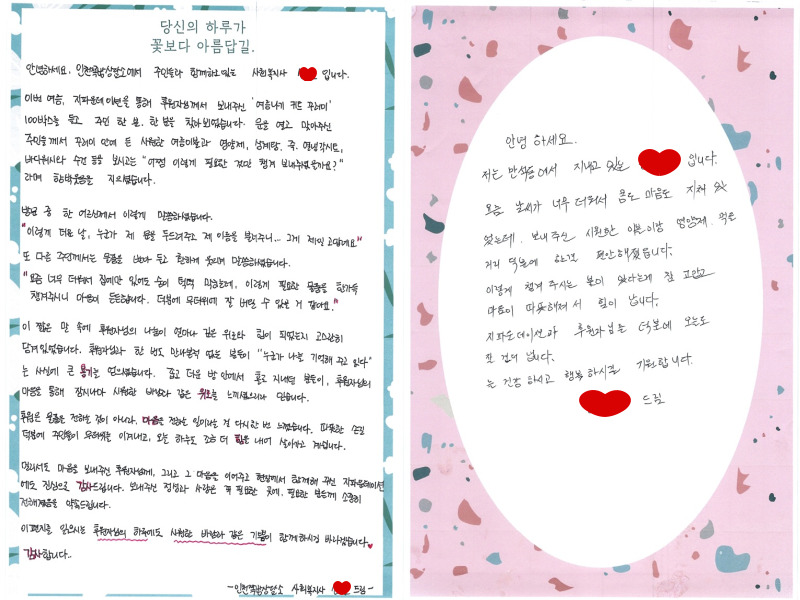 당신의 하루가
꽃보다 아름답길.
안녕하세요. 인천쪽방상담소에서 주민들과 함께하고 있는 사회복지사 입니다.
이번 여름, 지파운데이션을 통해 후원자님께서 보내주신 '여름나기 키트 꾸러미'
100박스를 들고 주민 한 분, 한 분을 찾아뵈었습니다. 문을 열고 맞아주신
주민들께서 꾸러미 안에 든 시원한 여름이불과 영양제, 삼계탕, 죽, 냉각시트,
바디워시와 수건 등을 보시고는 "어쩜 이렇게 필요한 것만 챙겨 보내주셨을까요?"
라며 함박웃음을 지으셨습니다.
방문 중 한 어르신께서 이렇게 말씀하셨습니다.
"이렇게 더운 날, 누군가 제 문을 두드려주고 제 이름을 불러주니... 그게 제일 고맙네요"
또 다른 주민께서는 물품을 받아 들고 환하게 웃으며 말씀하셨습니다.
"요즘 너무 더워서 집에만 있어도 숨이 턱턱 막히는데, 이렇게 필요한 물품을 한가득
챙겨주시니 마음이 든든합니다. 덕분에 무더위에 잘 버틸 수 있을 것 같아요."
이 짧은 말 속에 후원자님의 나눔이 얼마나 깊은 위로와 힘이 되었는지 고스란히
담겨있었습니다. 후원자님과 한 번도 만나본적 없는 분들이 "누군가 나를 기억해 주고 있다"
는 사실에 큰 용기를 얻으셨습니다. 좁고 더운 방 안에서 홀로 지내던 분들이, 후원자님의
마음을 통해 잠시나마 시원한 바람과 같은 위로를 느끼셨으리라 믿습니다.
후원은 물품을 전하는 것이 아니라, 마음을 전하는 일이라는 걸 다시 한 번 느꼈습니다. 따뜻한 손길
덕분에 주민들이 무더위를 이겨내고, 오늘 하루도 조금 더 힘을 내어 살아가고 계십니다.
멀리서도 마음을 보내주신 후원자님께, 그리고 그 마음을 이어주고 현장에서 함께해 주신 지파운데이션
에도 진심으로 감사드립니다. 보내주신 정성과 사랑은 꼭 필요한 곳에, 필요한 분들께 소중히
전해졌음을 약속드립니다.
이 편지를 읽으시는 후원자님의 하루에도 시원한 바람과 같은 기쁨이 함께하시길 바라겠습니다.
감사합니다..
-인천쪽방상담소 사회복지사 드림-
안녕 하세요.
저는 만석동에서 지내고 있는 입니다.
요즘 날씨가 너무 더워서 몸도 마음도 지쳐 있
었는데, 보내주신 시원한 이불이랑 영양제, 먹을
거리 덕분에 한결 편안해졌습니다.
이렇게 챙겨 주시는 분이 있다는게 참 고맙고
마음이 따뜻해져서 힘이 납니다.
지파운데이션과 후원자님들 덕분에 오늘도
잘 견뎌 냅니다.
늘 건강 하시고 행복 하시길 기원합니다.
드림